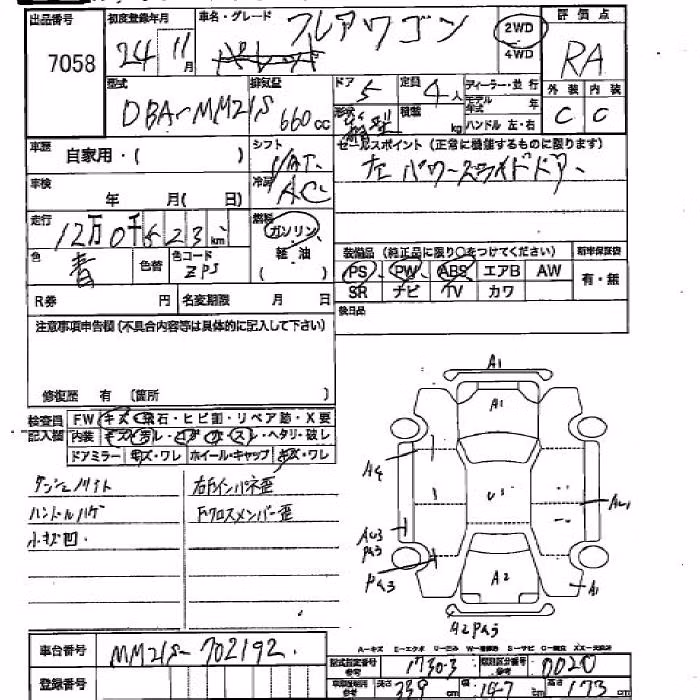 出品番号 初度登録年月 車名・グレード 評価点
7058 24 11月 フレアワゴン 2WD 4WD RA
型式 排気量 ドア 定員 ディーラー・並行 外装 内装
DBA-MM21S 660cc 5 4人 モデル年式 年 C C
形状 箱型 積載 kg ハンドル 左・右
車歴 自家用・( ) シフト セールスポイント(正常に機能するものに限ります)
左 パワースライドドア
車検 年 月( 日) 冷房 AC
走行 12万0千523km 燃料 ガソリン
軽油 ( )
色 青 色替 色コード ZPS
装備品(純正品に限り○をつけてください) 新車保証書
PS PW ABS エアB AW 有・無
SR ナビ TV カワ
R券 円 名変期限 月 日 後日品
注意事項申告欄(不具合内容等は具体的に記入して下さい)
修復歴 有 (箇所 )
検査員記入欄 FW キズ・飛石・ヒビ割・リペア跡・X要
内装 キズ・ヨゴレ・コゲ・穴・スレ・ヘタリ・破レ
ドアミラー キズ・ワレ ホイール・キャップ キズ・ワレ
ダッシュノリイト 右Fインパネ歪
ハンドルハゲ Fクロスメンバー歪
小キズ凹
A1
A1
A4
AU1
AU3
PA3
PA3
A2
A1
A2PA3
A=キズ E=エクボ U=凹み W=補修跡 S=サビ C=腐食 XX=交換済
車台番号 MM21S-702192 型式指定番号 参考 17303 類別区分番号 参考 0020
登録番号 参考 長さ 339cm 幅 147cm 高さ 173cm